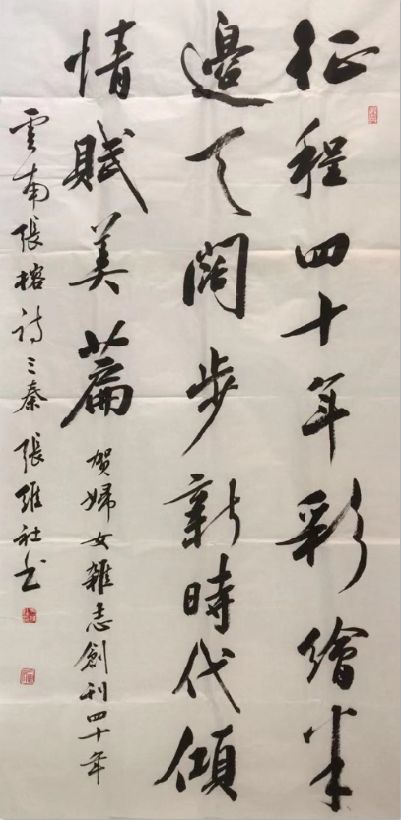 征程四十年彩繪半
邊天闊步新時代傾
情賦美篇
賀婦女雜志創刊四十年
雲南張榕詩三秦張維社书